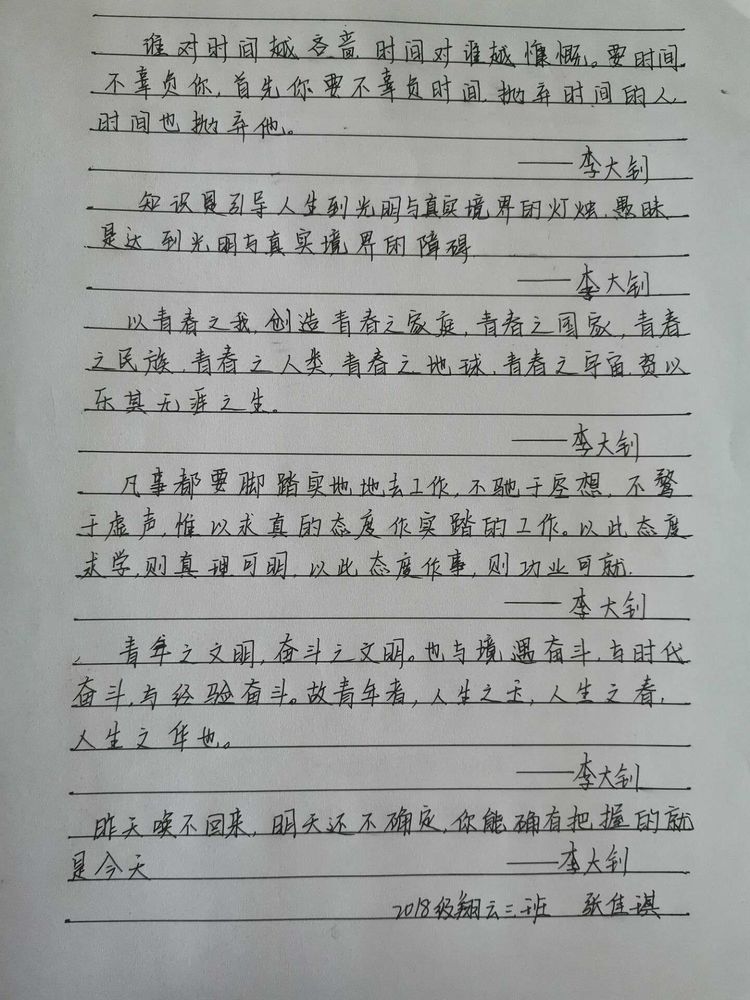 谁对时间越吝啬,时间对谁越慷慨。要时间
不辜负你,首先你要不辜负时间,抛弃时间的人,
时间也抛弃他。
——李大钊
知识是引导人生到光明与真实境界的灯烛,愚昧
是达到光明与真实境界的障碍.
——李大钊
以青春之我,创造青春之家庭,青春之国家,青春
之民族,青春之人类,青春之地球,青春之宇宙,资以
乐其无涯之生。
——李大钊
凡事都要脚踏实地地去工作,不驰于空想,不鹜
于虚声,惟以求真的态度作实踏的工作。以此态度
求学,则真理可明,以此态度作事,则功业可就.
——李大钊
青年之文明,奋斗之文明。也与境遇奋斗,与时代
奋斗,与经验奋斗。故青年者,人生之王,人生之春,
人生之华也。
——李大钊
昨天唤不回来,明天还不确定,你能确有把握的就
是今天 ——李大钊
2018级翔云三班 张佳琪